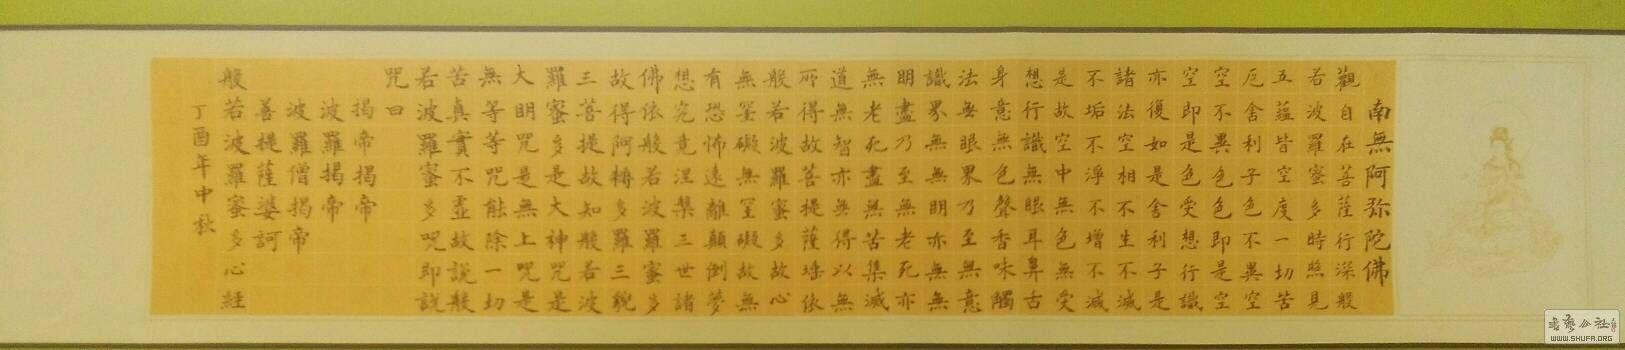 南無阿弥陀佛
觀自在菩薩行深般
若波羅蜜多時照見
五蘊皆空度一切苦
厄舍利子色不異空
空不異色色即是空
空即是色受想行識
亦復如是舍利子是
諸法空相不生不滅
不垢不淨不增不減
是故空中無色無受
想行識無眼耳鼻舌
身意無色聲香味觸
法无眼界乃至無意
識界無無明亦無無
明盡乃至無老死亦
無老死盡無苦集滅
道無智亦無得以無
所得故菩提薩埵依
般若波羅蜜多故心
無罣礙無罣礙故無
有恐怖遠離顛倒夢
想究竟涅槃三世諸
佛依般若波羅蜜多
故得阿耨多羅三藐
三菩提故知般若波
羅蜜多是大神咒是
大明咒是無上咒是
無等等咒能除一切
苦真實不虛故說般
若波羅蜜多咒即說
咒曰
揭帝揭帝
波羅揭帝
波羅僧揭帝
菩提薩婆訶
般若波羅蜜多心經
丁酉年中秋
书艺公社
WWW.SHUFA.ORG